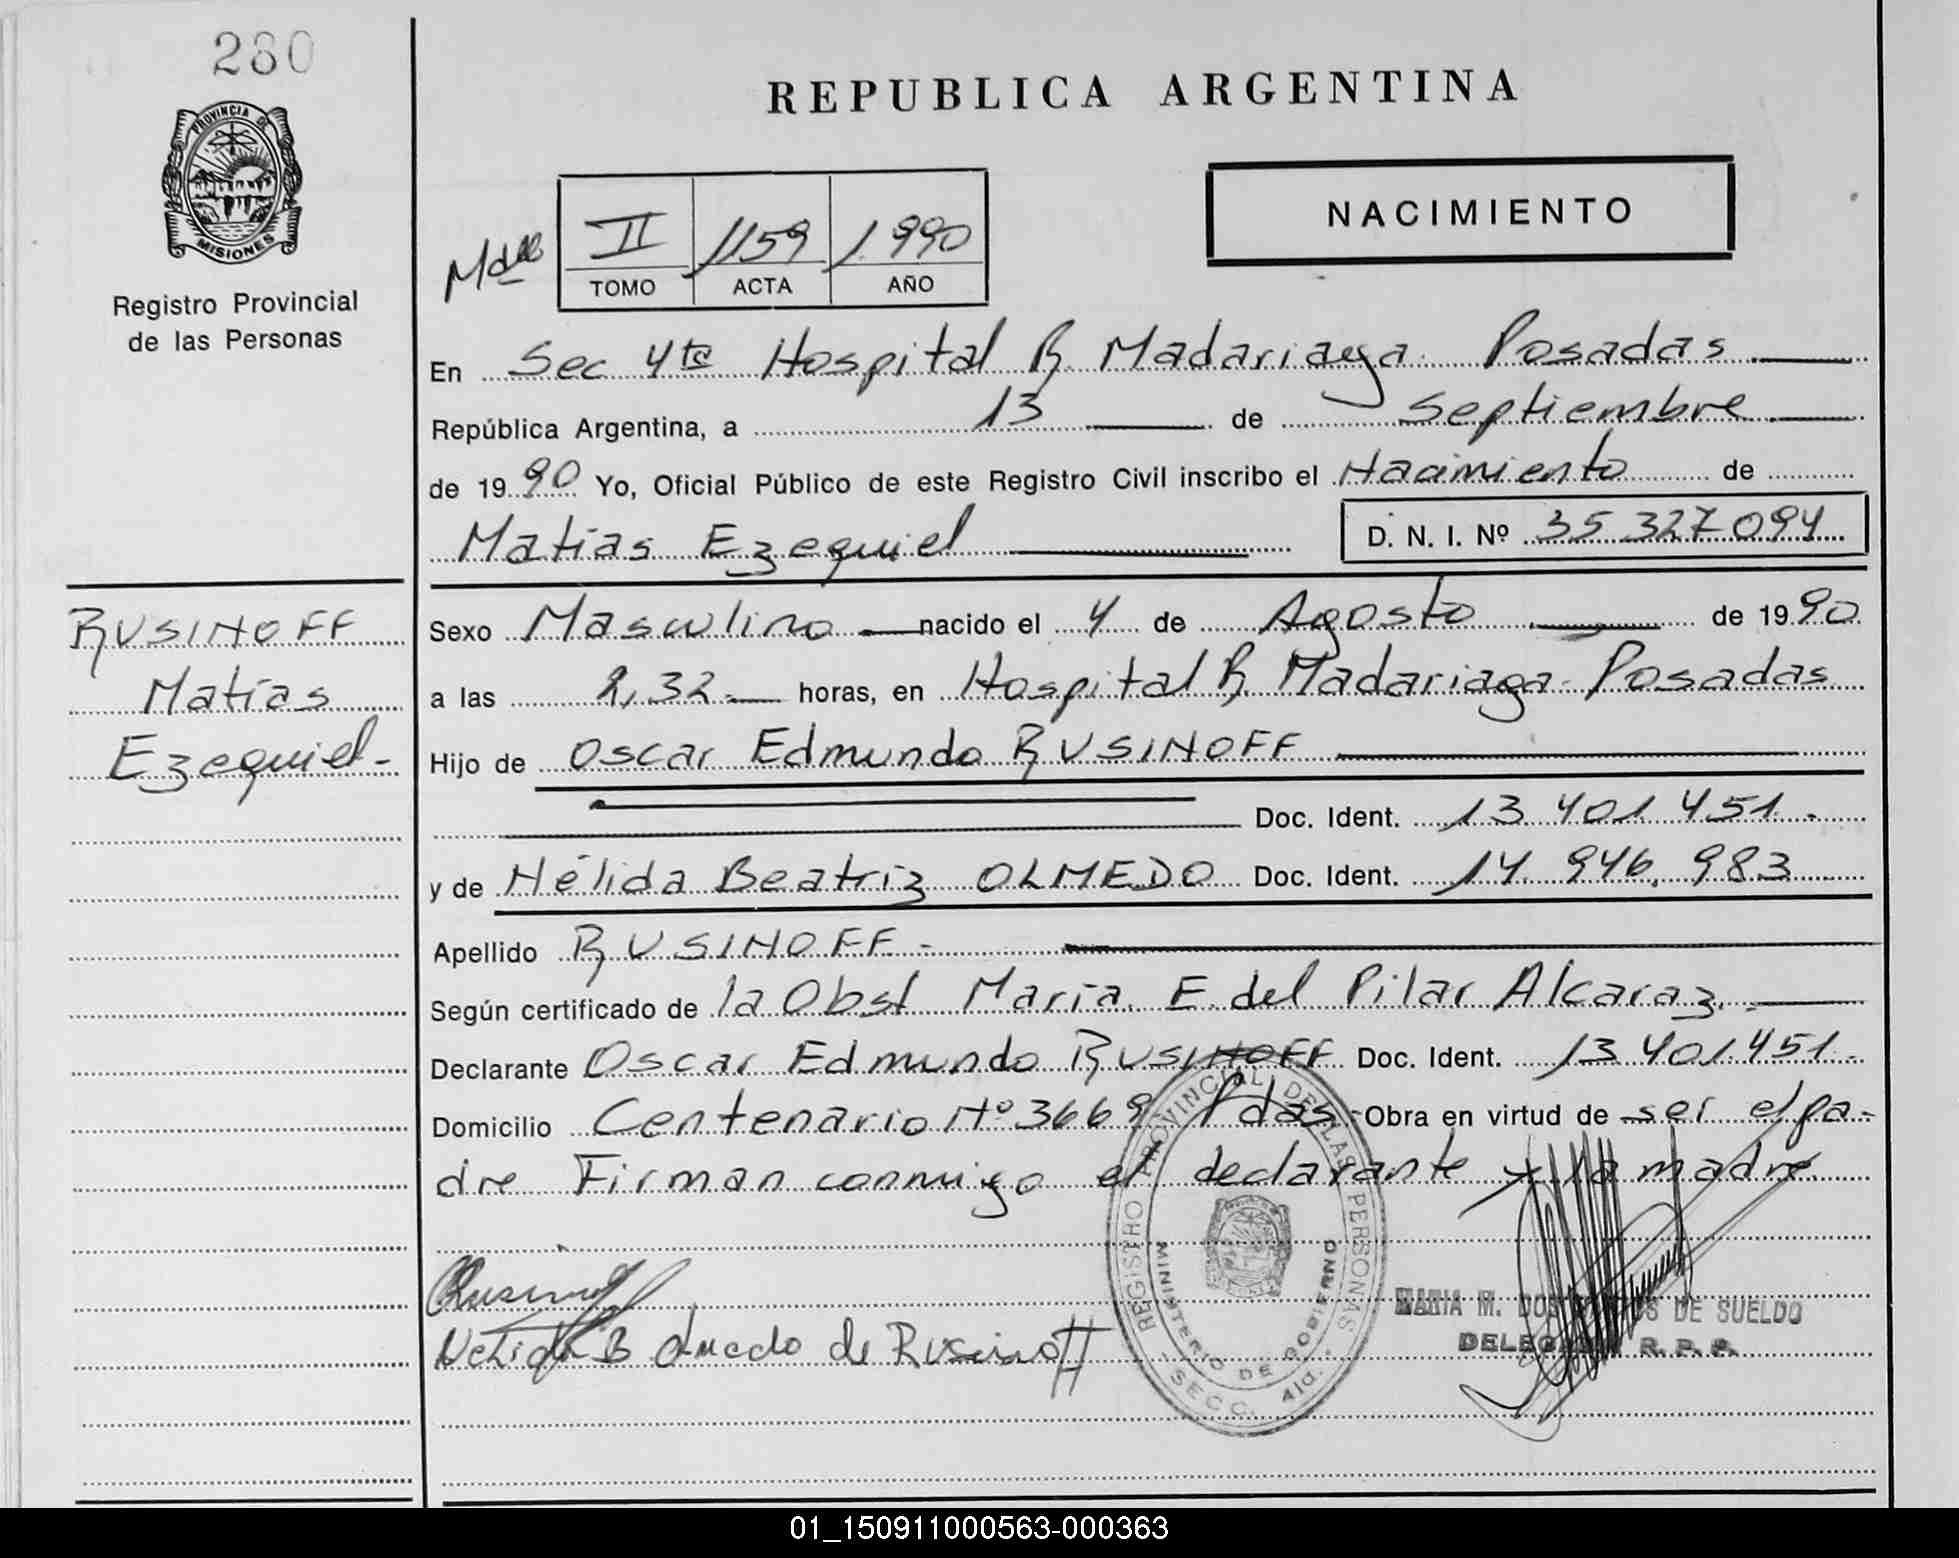 280
PROVINCIA DE
MISIONES
Registro Provincial
de las Personas
REPUBLICA ARGENTINA
NACIMIENTO
II 1159 1.990
TOMO ACTA AÑO
En Sec 4ta Hospital R. Madariaga. Posadas
República Argentina, a 13 de Septiembre
de 1990 Yo, Oficial Público de este Registro Civil inscribo el Nacimiento de
Matías Ezequiel D. N. I. Nº 35.327.094
RUSINOFF
Matías
Ezequiel-
Sexo Masculino nacido el 4 de Agosto de 1990
a las 2,32 horas, en Hospital R. Madariaga-Posadas
Hijo de Oscar Edmundo RUSINOFF
Doc. Ident. 13.401.451.-
y de Nélida Beatriz OLMEDO Doc. Ident. 14.946.983
Apellido RUSINOFF.-
Según certificado de la Obst María. E. del Pilar Alcaraz.
Declarante Oscar Edmundo RUSINOFF Doc. Ident. 13.401.451.-
Domicilio Centenario Nº 3669 Pdas Obra en virtud de ser el pa-
dre Firman conmigo el declarante y la madre
REGISTRO PROVINCIAL DE LAS PERSONAS
MINISTERIO DE GOBIERNO
- SECC. 4ta. -
MARIA M. DOS SANTOS DE SUELDO
DELEGADA R. P. P.
Nelida B Olmedo de Rusinoff
01_150911000563-000363